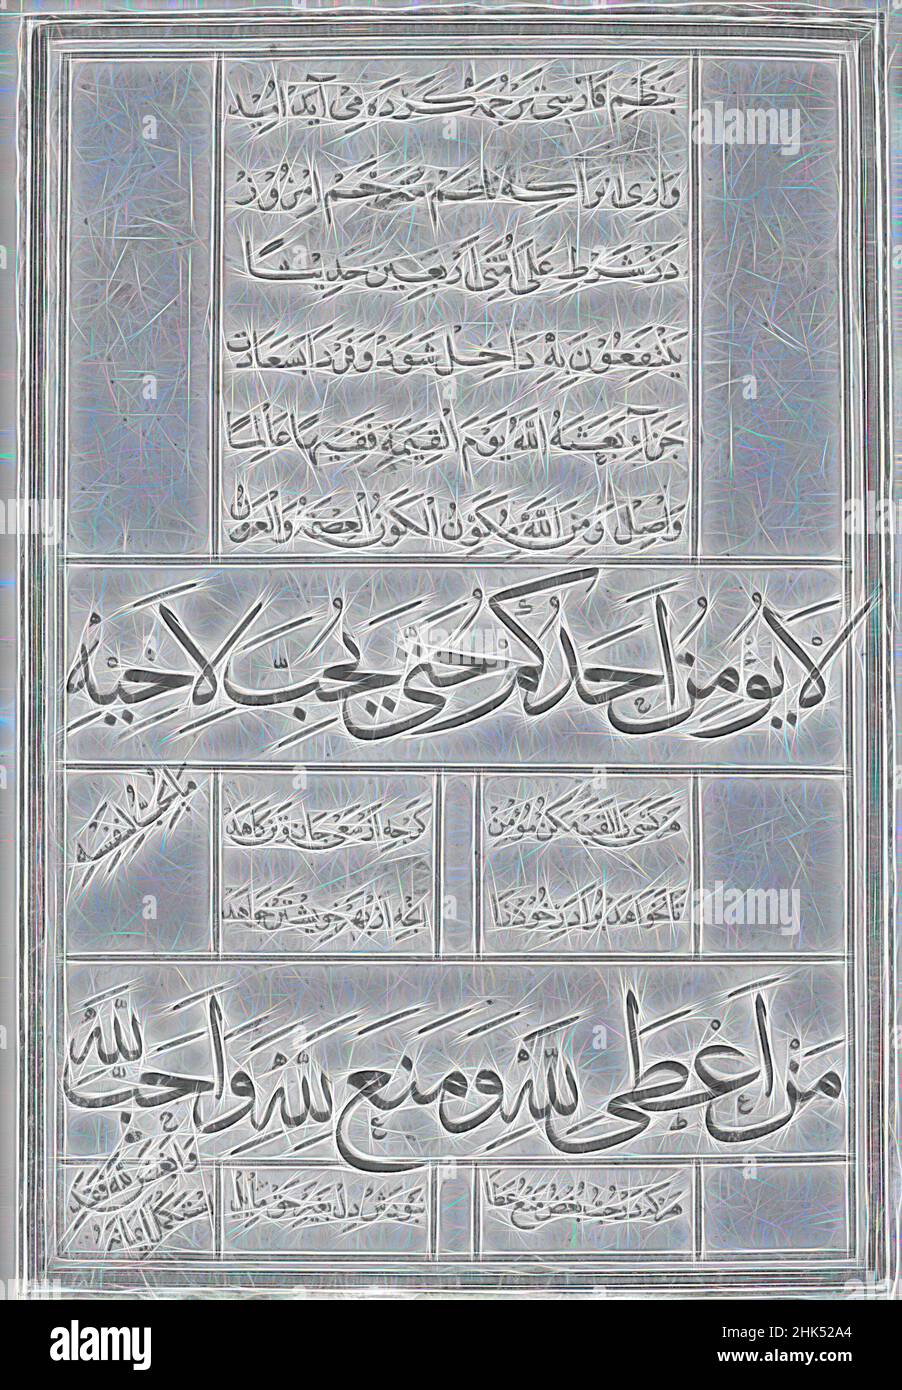 بنظم فارسی ترجمه کرده می آید امید
در شرط من حفظ علی امتی اربعین حدیثا
ینتفعون به داخل شود و فردا بسعادت
جزاء بعثه الله یوم القیمة فقیها عالما
واصل ومن الله یکون الکون العصمة والعون
لا یؤمن احدکم حتی یحب لاخیه
ما یحب لنفسه
هر کسی را لقب مکن مؤمن
گرچه از سعی جان و تن کاهد
تا نخواهد برادر خود را
آنچه از بهر خویشتن خواهد
من اعطی لله ومنع لله واحب لله
وابغض لله فقد
استکمل ایمانه
هر که در حب و بغض و منع و عطا
نبودش دل بغیر حق مایل
alamy
Image ID: 2HK52A4
www.alamy.com